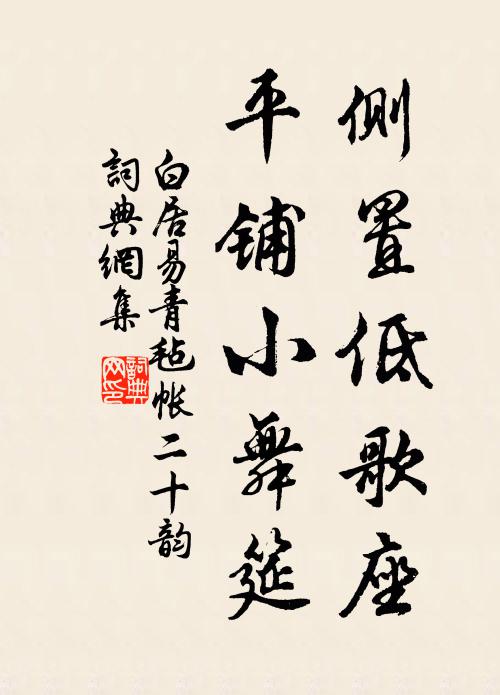 側置低歌座
平鋪小舞筵
白居易青毡帐二十韵
詞典網集
詞典网印